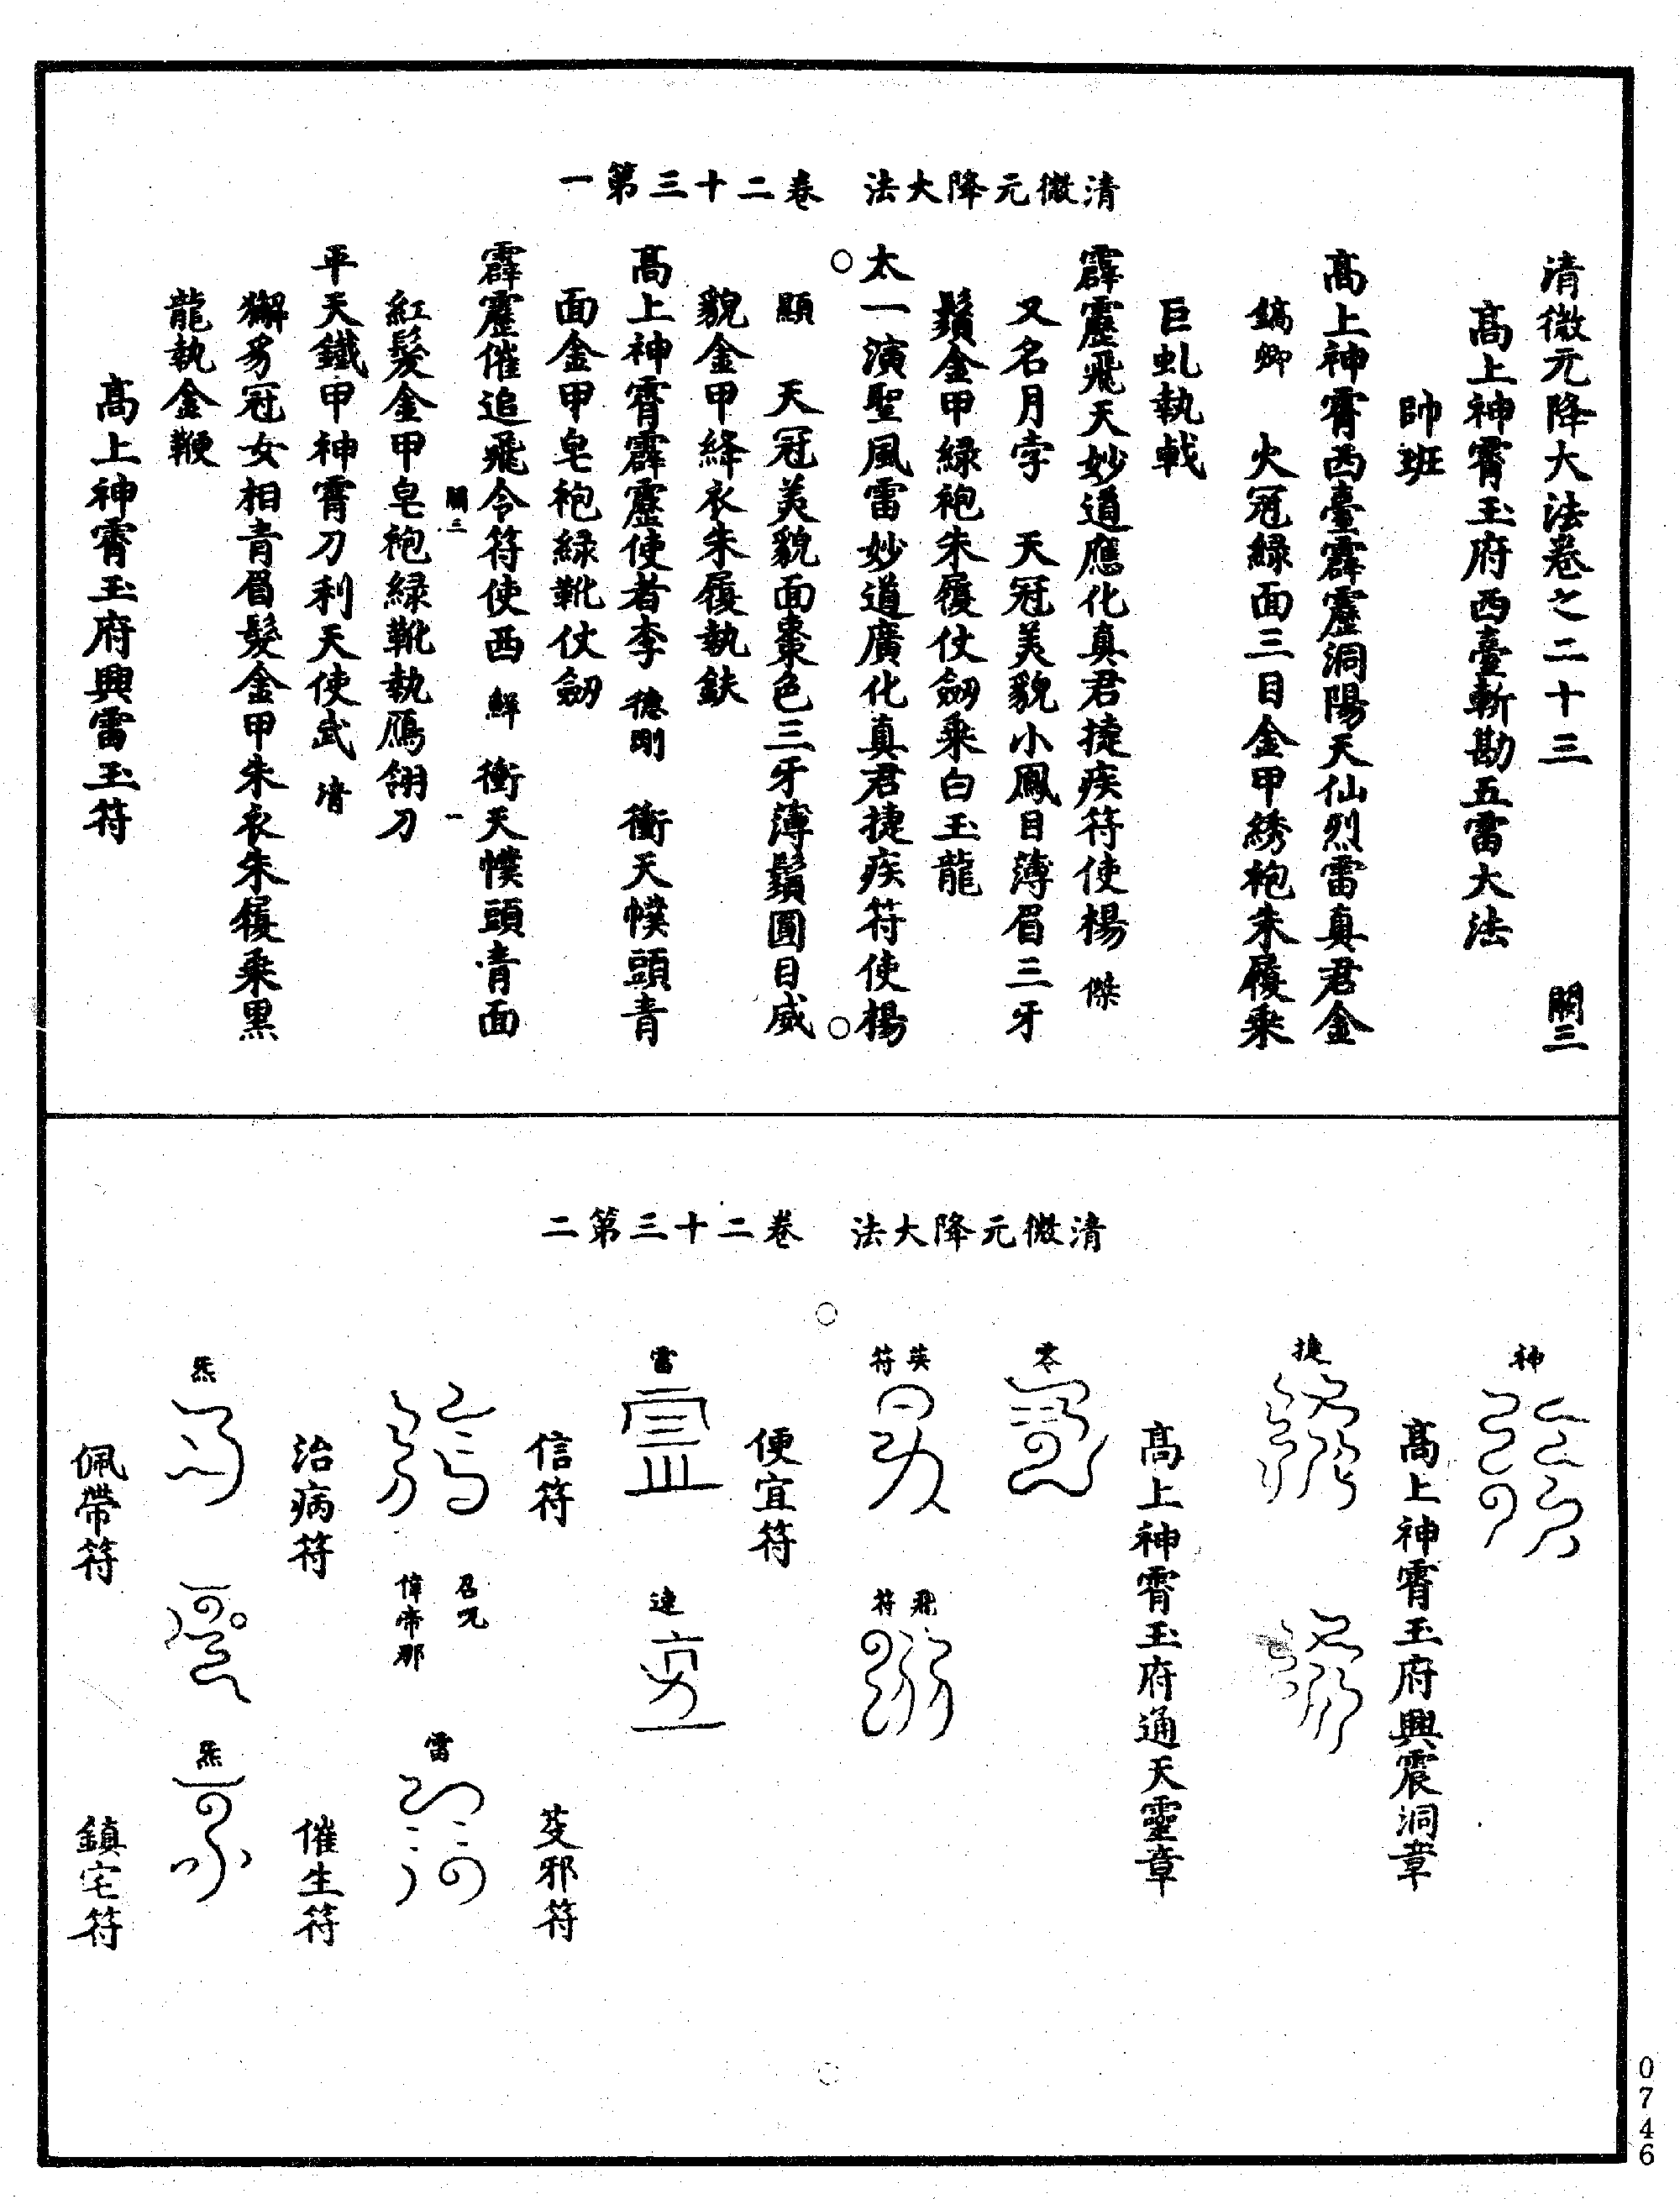 清微元降大法　卷二十三第一
清微元降大法卷之二十三　關三
高上神霄玉府西臺斬勘五雷大法
帥班
高上神霄西臺霹靂洞陽天仙烈雷真君金
鎬卿　火冠緑面三目金甲綉袍朱履乘
巨虬執戟
霹靂飛天妙道應化真君捷疾符使楊傑
又名月孛　天冠美貌小鳳目薄眉三牙
鬚金甲緑袍朱履仗劒乘白玉龍
太一演聖風雷妙道廣化真君捷疾符使楊
顯　天冠美貌面棗色三牙薄鬚圓目威
貌金甲絳衣朱履執鈇
高上神霄霹靂使者李德剛　衝天幞頭青
面金甲皂袍緑靴仗劒
霹靂催追飛令符使西鮮　衝天幞頭青面
關三　一
紅髮金甲皂袍緑靴執鴈翎刀
平天鐵甲神霄刀利天使武清
獬豸冠女相青眉髮金甲朱衣朱履乘黒
龍執金鞭
高上神霄玉府興雷玉符
清微元降大法　卷二十三第二
神
高上神霄玉府興震洞章
捷
高上神霄玉府通天靈章
零
英符
飛符
便宜符
雷
速
信符
芟邪符
召咒
偉帝那
雷
治病符
催生符
炁
炁
佩帶符
鎮宅符
0746